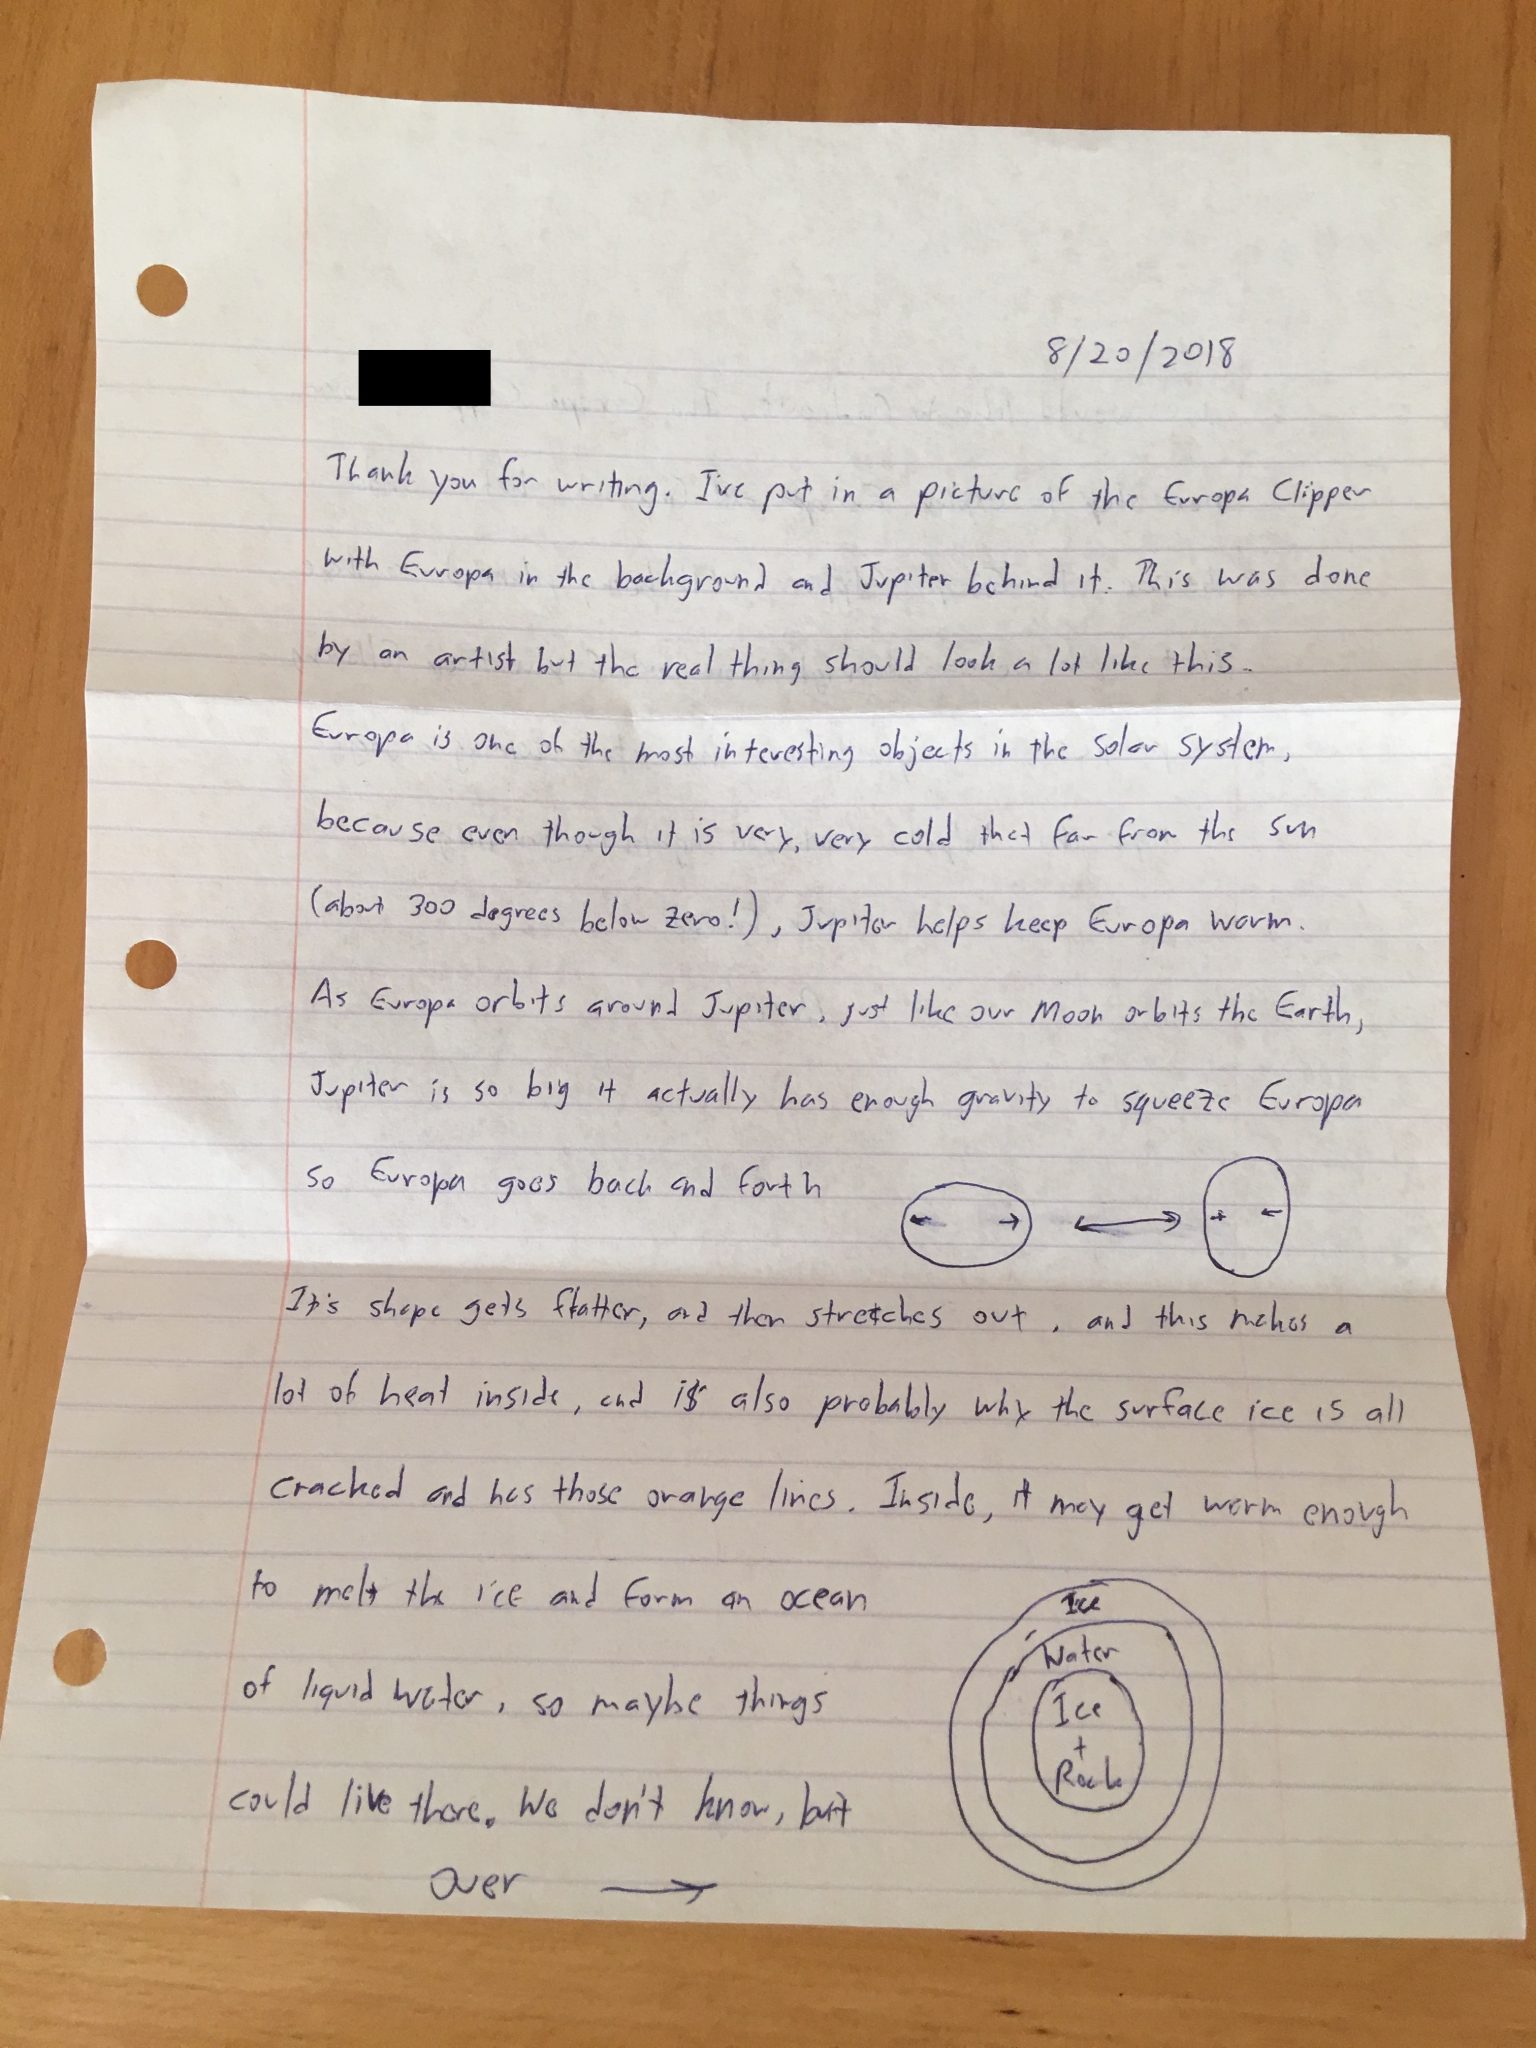 8/20/2018
Thank you for writing. I've put in a picture of the Europa Clipper
with Europa in the background and Jupiter behind it. This was done
by an artist but the real thing should look a lot like this.
Europa is one of the most interesting objects in the solar system,
because even though it is very, very cold that far from the sun
(about 300 degrees below zero!), Jupiter helps keep Europa warm.
As Europa orbits around Jupiter, just like our Moon orbits the Earth,
Jupiter is so big it actually has enough gravity to squeeze Europa
so Europa goes back and forth
It's shape gets flatter, and then stretches out, and this makes a
lot of heat inside, and is also probably why the surface ice is all
cracked and has those orange lines. Inside, it may get warm enough
to melt the ice and form an ocean
of liquid water, so maybe things
could live there. We don't know, but
Over
Ice
Water
Ice
+
Rock